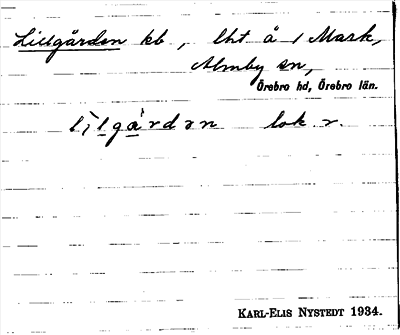 Lillgården kb, lht å 1 Mark,
Almby sn,
Örebro hd, Örebro län.
lilgárdɘn lok r.
KARL-ELIS NYSTEDT 1934.